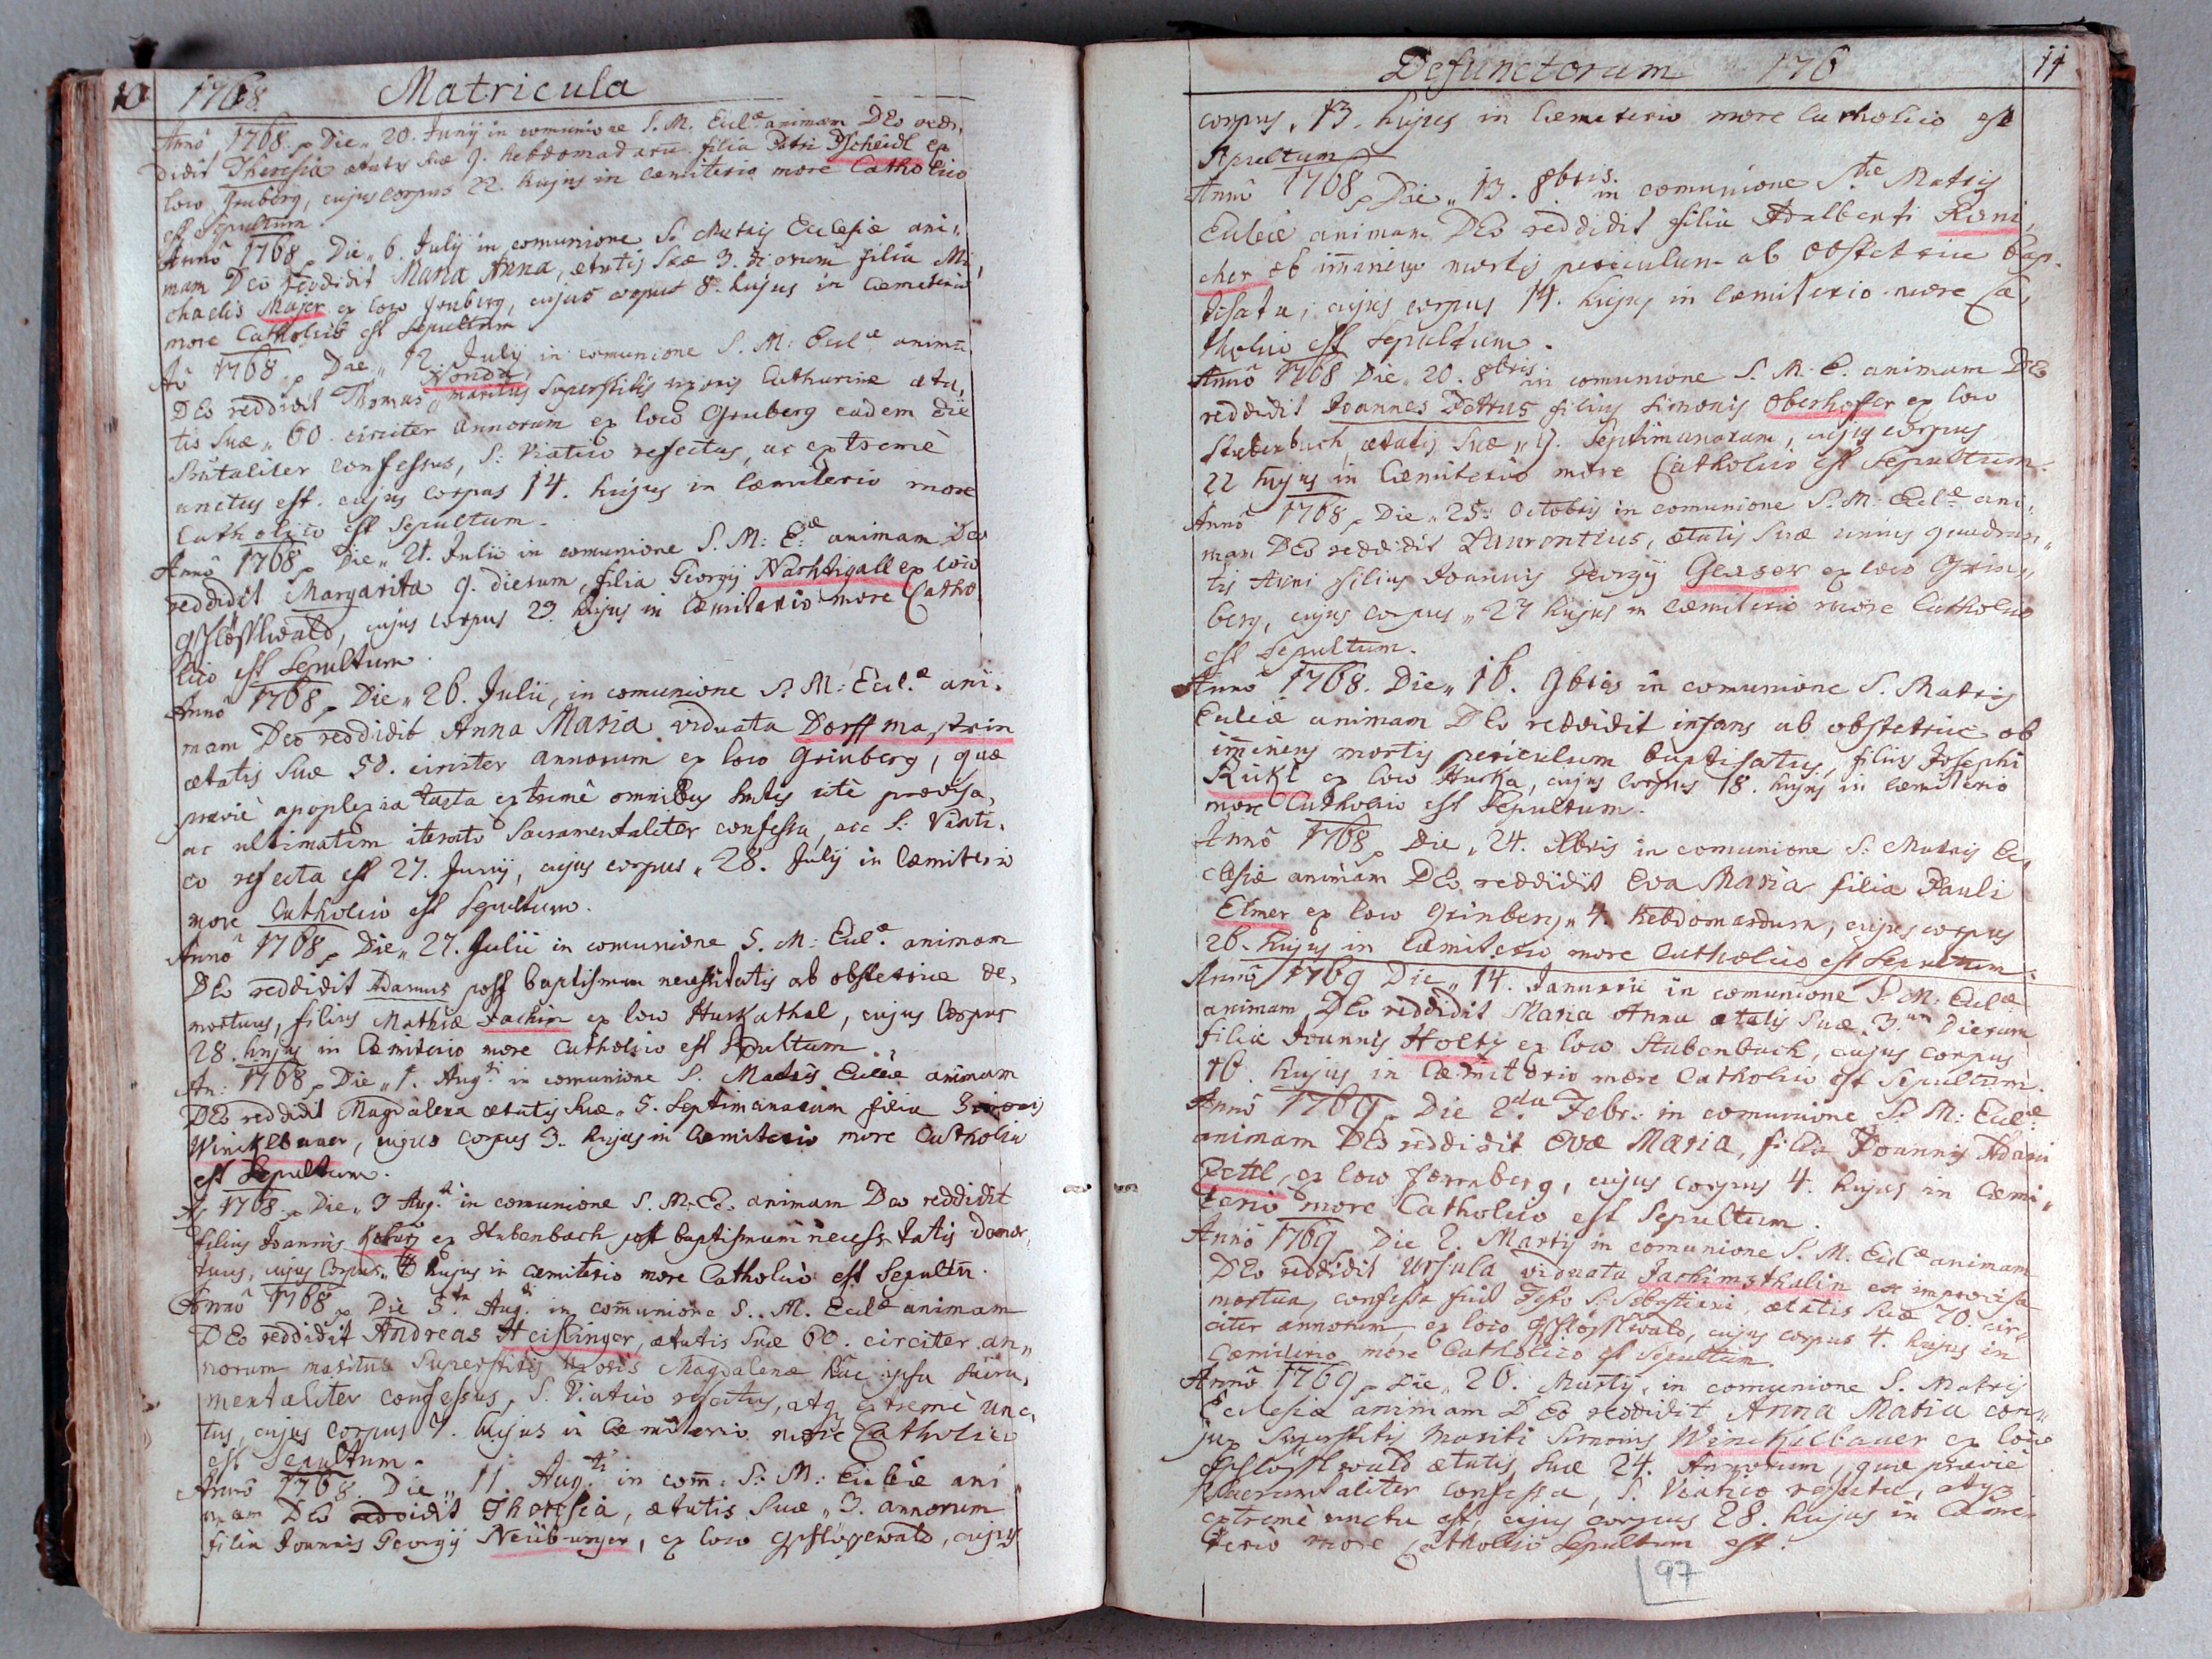 10 1768 Matricula
Annô 1768. Die „ 20. Junÿ in comunione S. M. Eccl.æ animam DEo red„
didit Theresia ætatis suæ 9. hebdomadarũ filia Petri Pscheidl ex
loco Grüberg, cujus corpus 22. hujus in cæmiterio more Catholico
est Sepultum.
Annô 1768 Die „ 6. Julÿ in comunione S. Matris Ecclesiæ ani„
mam Deo reddidit Maria Anna, ætatis suæ 3. dierum filia Mi„
chaelis Majer ex loco Grüberg, cujus corpus 8. hujus in Cæmiterio
more Catholico est Sepultum
Aô 1768. Die „ 12. Julÿ in comunione S. M: Eccl.æ animã
DEo reddidit Thomas maritus superstitis uxoris Catharinæ æta„
tis suæ „ 60. circiter annorum ex loco Gruberg eadem die
confessus, S: Viatico refectus, ac extremè
unctus est. cujus corpus 14. hujus in Cæmiterio more
Catholico est Sepultum.
Annô 1768 Die „ 21. Julii in comunione S. M: E:æ animam Deo
reddidit Margarita 9. dierum, filia Georgÿ Nachtigall ex loco
gschlösslwald, cujus corpus 23. hujus in Cæmiterio more Catho„
lico est Sepultum.
Annô 1768 Die „ 26. Julii, in comunione S. M: Eccl.æ ani„
mam Deo reddidit Anna Maria viduata Dorffmastrin
ætatis suæ 50. circiter annorum ex loco Grinberg, quæ
præviè apoplexia tacta extremè omnibus ritè provisa,
ac ultimatim iteratò Sacramentaliter confessa, ac S: Viati„
co refecta est 27. Junÿ, cujus corpus „ 28. Julÿ in Cæmiterio
more Catholico est Sepultum.
Annô 1768 Die „ 27. Julii in comunione S. M: Eccl.æ animam
DEo reddidit Adamus post baptismum necessitatis ab obstetrice de„
mortuus, filius Mathiæ Jachim ex loco Hurkathal, cujus Corpus
28. hujus in Cæmiterio more Catholico est Sepultum.
An: 1768 Die „ 1. Aug.ti in comunione S. Matris Eccleæ animam
DEo reddidit Magdalena ætatis suæ „ 5. Septimanarum filia Simonis
Wincklbauer, cujus corpus 3. hujus in Cæmiterio more Catholico
est Sepultum.
Aô 1768. Die „ 3 Aug.ti in comunione S. M. E. animam Deo reddidit
filius Joannis ex Stubenbach post baptismum necessitatis
tuus, cujus Corpus „ hujus in cæmiterio more Catholico est Sepultũ.
Annô 1768 Die 5.ta Aug.ti in comunione S. M. Eccl.æ animam
DEo reddidit Andreas ætatis suæ 60. circiter an„
norum maritus Superstitis Uxoris Magdalenæ hâc ipsa Sacra„
mentaliter confessus, S. Viatico refectus, atq extremè unc„
tus, cujus corpus 7. hujus in Cæmiterio more Catholico
est Sepultum.
Annô 1768. Die „ 11. Aug.ti in com: S: M: Eccleæ ani„
mam DEo reddidit Theresia, ætatis suæ „ 3. annorum
filia Joannis Georgÿ Neüburger, ex loco gschlösslwald, cujus
Defunctorum 176 11
corpus „ 13. hujus in Cæmiterio more Catholico est
Sepultum
Annô 1768 Die „ 13. 8bris. in comunione S.tæ Matris
Eccleæ animam DEo reddidit filia Adalberti Kæni„
cher ob iminens mortis periculum ab obstetrice bap„
tisata, cujus corpus 14. hujus in cæmiterio more Ca„
tholico est Sepultum.
Annô 1768 Die „ 20. 8bris in comunione S. M: E. animam DEo
reddidit Joannes Petrus filius Simonis Oberhofer ex loco
Stubenbach, ætatis suæ „ 9. Septimanarum, cujus corpus
22 hujus in Cæmiterio more Catholico est Sepultum.
Annô 1768 Die „ 25. Octobris in comunione S. M: Eccl.æ ani„
mam DEo reddidit Laurentius, ætatis suæ unius quadran„
tis Anni filius Joannis Georgÿ Glaser ex loco Grin„
berg, cujus corpus „ 27 hujus in cæmiterio more Catholico
est Sepultum.
Annô 1768. Die „ 16. 9bris in comunione S. Matris
Eccleæ animam DEo reddidit infans ab obstetrice ob
iminens mortis periculum baptisatus, filius Josephi
Rückl ex loco Hurka, cujus Corpus 18. hujus in cæmiterio
more Catholico est Sepultum.
Annô 1768 Die „ 24. Xbris in comunione S: Matris Ec„
clesiæ animam DEo reddidit Eva Maria filia Pauli
Elmer ex loco Grinberg „ 4. hebdomardum, cujus corpus
26. hujus in Cæmiterio more Catholico est Sepultum.
Annô 1769 Die „ 14. Januarii in comunione S. M: Eccl.æ
animam DEo reddidit Maria Anna ætatis suæ „ 3.um Dierum
filia Joannis Holtz ex loco Stubenbach, cujus corpus
16. hujus in Cæmiterio more Catholico est Sepultum.
Annô 1769 Die 2.da Febr: in comunione S. M: Eccl.æ
animam DEo reddidit Eva Maria, filia Joannis Adami
ex loco cujus corpus 4. hujus in Cæmi„
terio more Catholico est Sepultum.
Annô 1769 Die 2. Martÿ in comunione S. M: Eccl.æ animam
DEo reddidit Ursula viduata Jachimsthalin ex improviso
mortua, confessa fuit Festo S. Sebastiani, ætatis suæ 70. cir„
citer annorum, ex loco gschlösslwald, cujus corpus 4. hujus in
Cæmiterio more Catholico est Sepultum.
Annô 1769 Die „ 26. Martÿ, in comunione S. Matris
Eclesiæ animam DEo reddidit Anna Maria con„
jux Superstitis Mariti Simonis Winckelbauer ex loco
gschlösslwald ætatis suæ 24. Annorum, quæ præviè
Sacramentaliter confessa, S. Viatico refecta, atq
extremè uncta est, cujus corpus 28. hujus in Cæmi„
terio more Catholico Sepultum est.
97